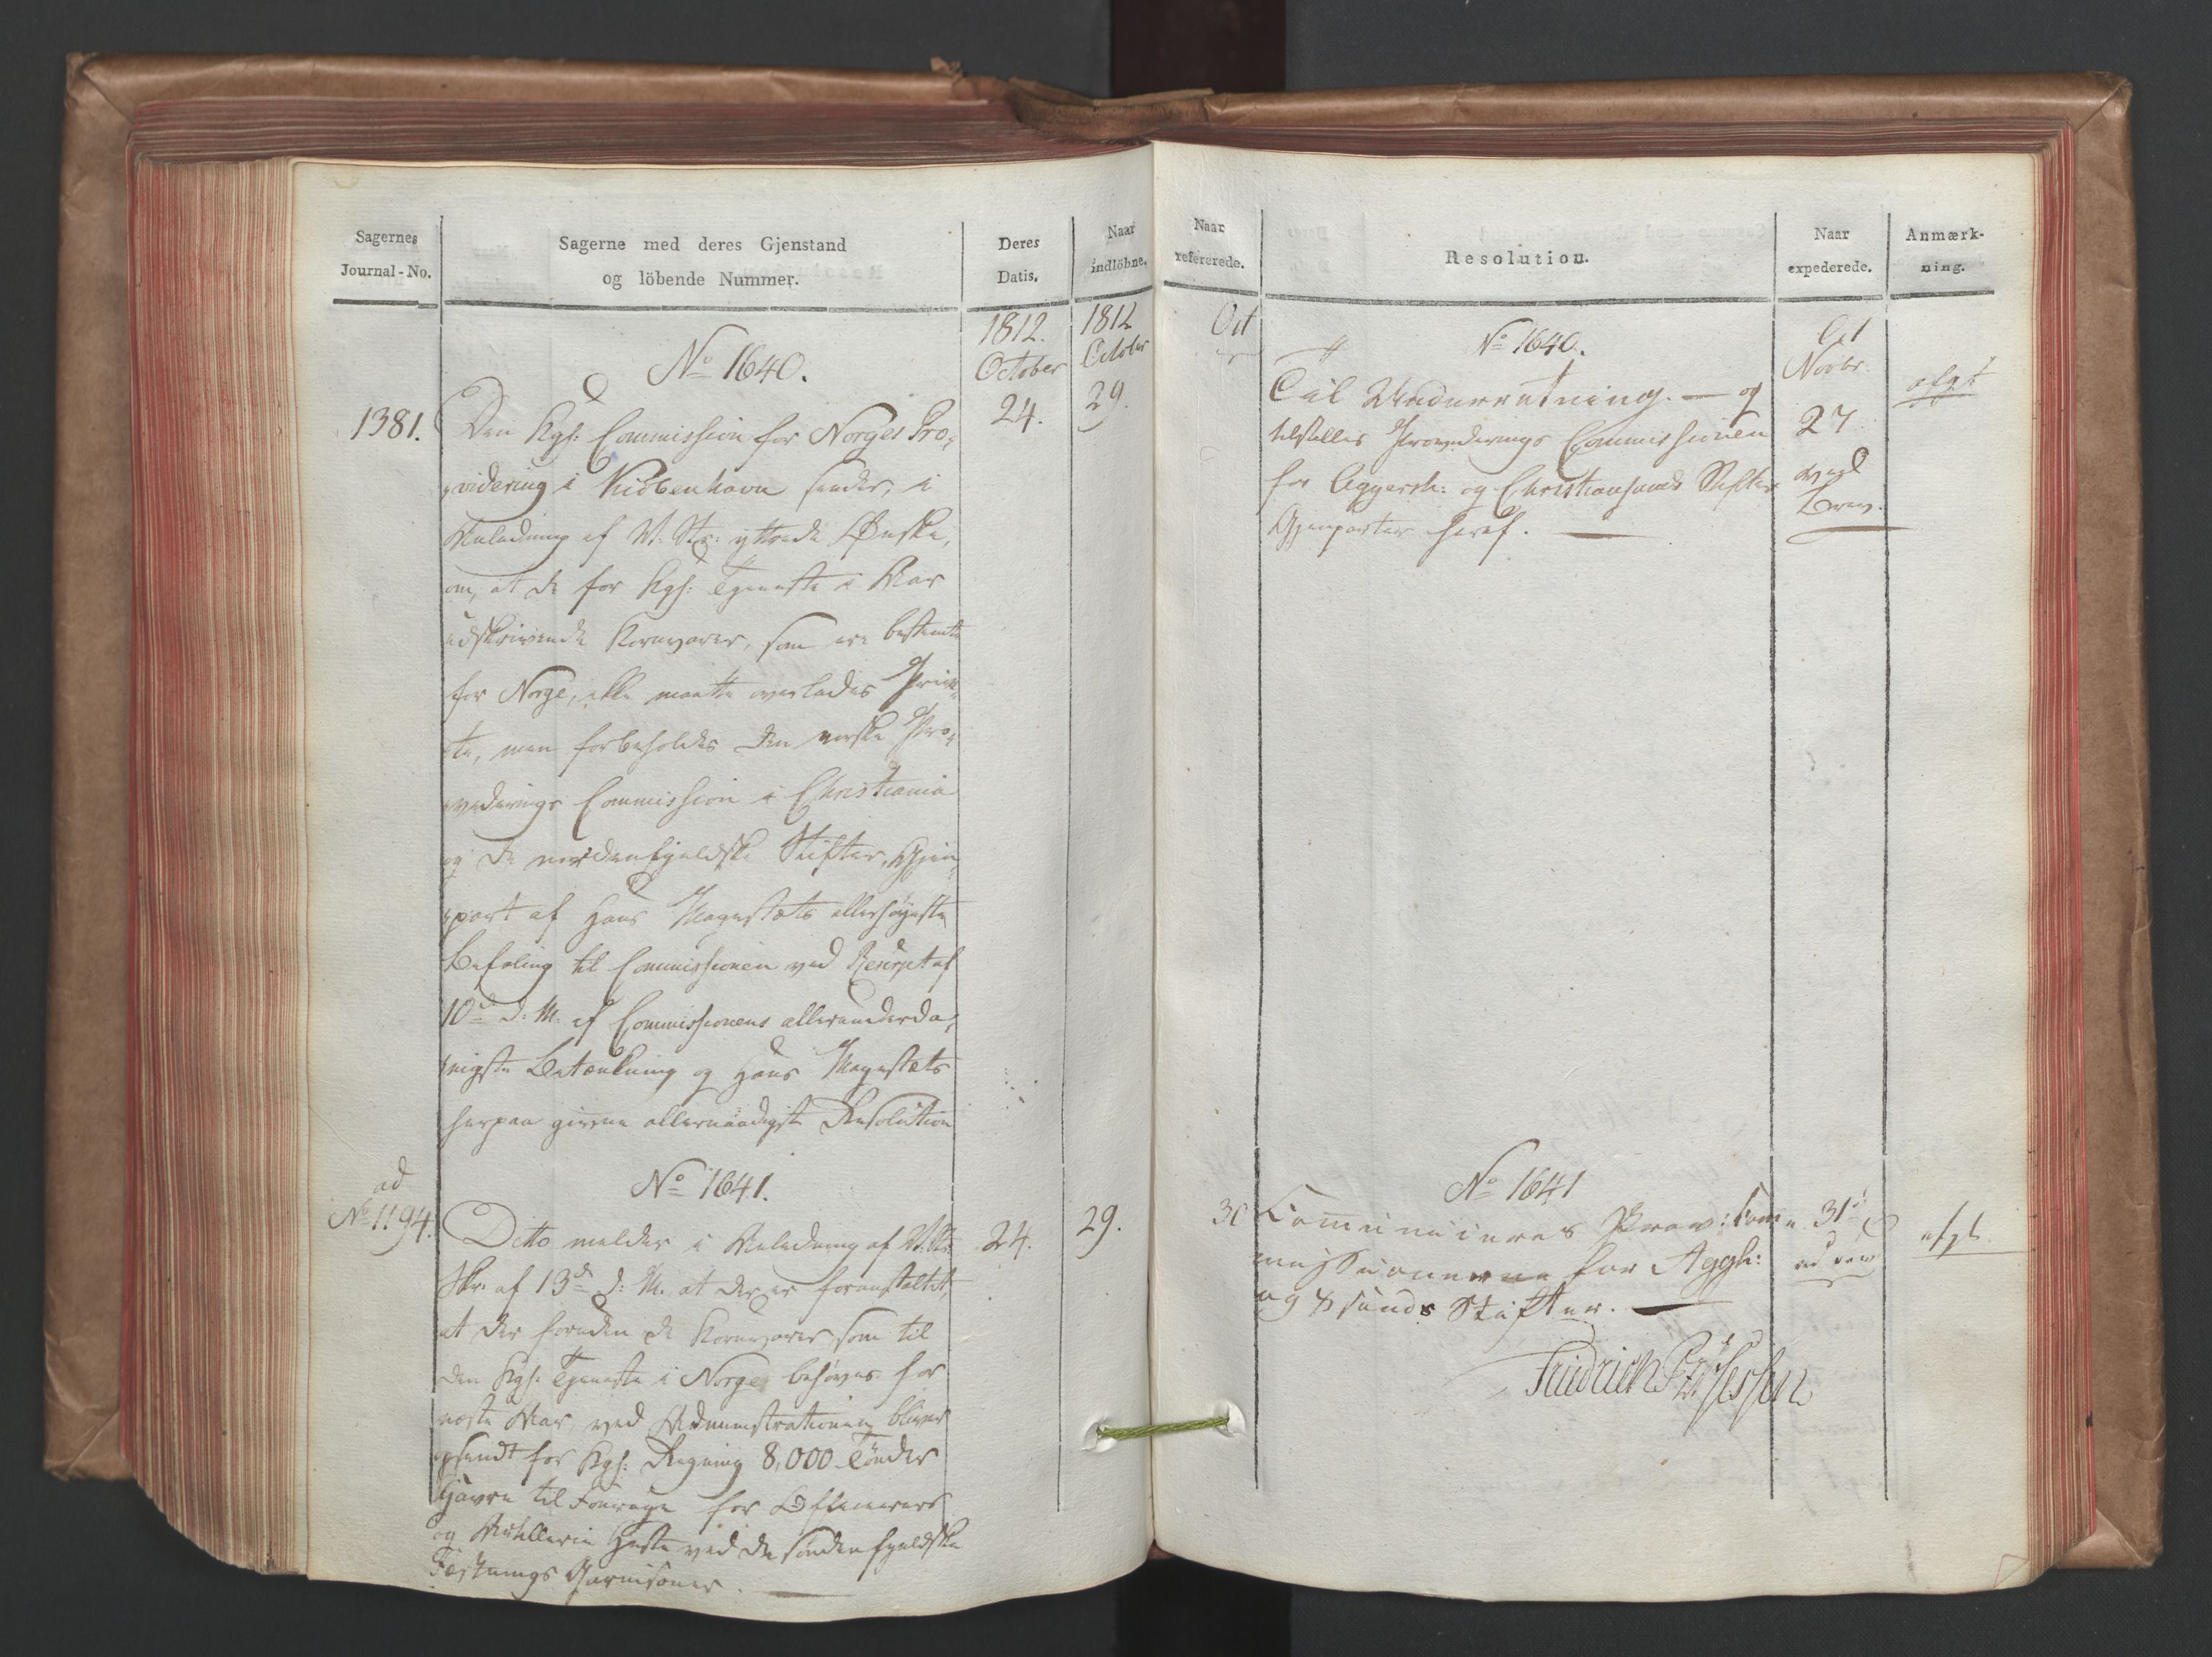 Sagernes
Journal-No.
Sagerne med deres Gjenstand
og löbende Nummer.
Deres
Datis.
Naar
indlöbne.
1812.
October
1812
October
No 1640.
1381.
24.
29.
Den Kgh: Commission for Norges Pro-
videring i Kiöbenhavn sender, i
Anledning af V: St: yttrede Ønske,
om, at de for Kgh: Tjeneste i Aar
udskrivende Kornvarer, som ere bestemte
for Norge, ikke maatte overlades Priva-
te, men forbeholdes den norske Pro-
viderings Commission i Christiania
og de nordenfjeldske Stifter, Gjen-
part af Hans Majestæts allerhøjeste
Befaling til Commissionen ved Rescript af
10de d: M. af Commissionens allerunderda-
nigste Betænkning og Hans Majestæts
herpaa givne allernaadigste Resolution
No 1641.
ad
No 1194.
24.
29.
Ditto melder i Anledning af V. St:
Skr. af 13de d: M. at der er foranstaltet,
at der foruden de Kornvarer, som til
den Kgh. Tjeneste i Norge behøves for
næste Aar, ved Administrationen bliver
opsendt for Kgh: Regning 8,000 Tönder
Havre til Fourage for Officerers
og Artillerie Heste ved de söndenfjeldske
Fæstnings Garnisoner.
Naar
refererede.
Resolution.
Naar
expederede.
Anmærk-
ning.
Oct
No 1640.
Oct
Novbr.
Til Underretning. — og
tilstilles Provianderings Commissionen
for Aggersh: og Christiansands Stifter
Gjenparter heraf.
27
ved
Brev.
afgt
No 1641
30
Communiceres Prov: Com-
missionerne for Aggh:
og Xsands Stifter.
31
ad
afgt.
Friedrich